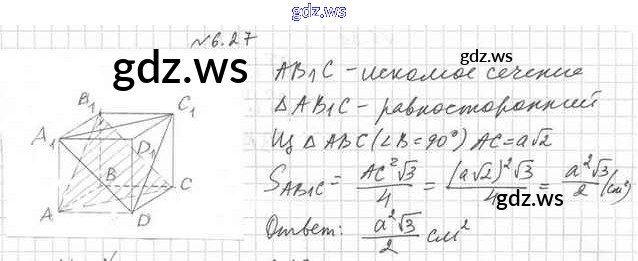 gdz.ws
№6.27
gdz.ws
AB₁C - искомое сечение
△AB₁C - равносторонний
Из △ABC (∠B = 90°) AC = a√2
S_AB₁C = AC²√3/4 = (a√2)²√3/4 = a²√3/2 (см²)
Ответ: a²√3/2 см²
B₁
C₁
A₁
D₁
B
C
A
D
gdz.ws